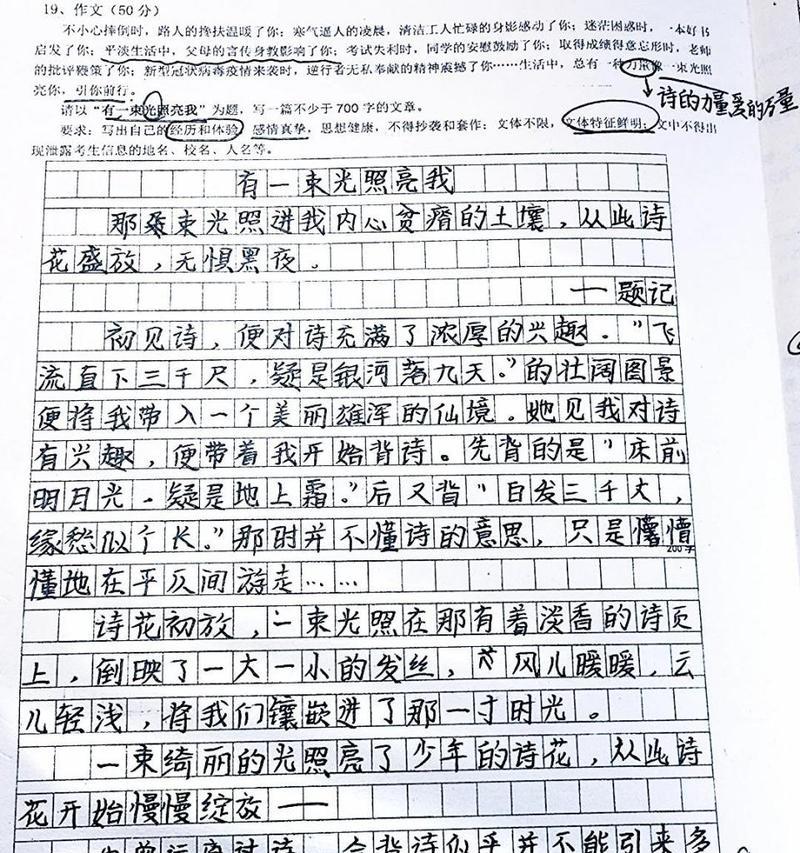 19、作文(50分)
不小心摔倒时，路人的搀扶温暖了你；寒气逼人的凌晨，清洁工人忙碌的身影感动了你；迷茫困惑时，一本好书
启发了你；平淡生活中，父母的言传身教影响了你；考试失利时，同学的安慰鼓励了你；取得成绩得意忘形时，老师
的批评鞭策了你；新型冠状病毒疫情来袭时，逆行者无私奉献的精神震撼了你……生活中，总有一种力量像一束光照
亮你，引你前行。
诗的力量 爱的力量
请以“有一束光照亮我”为题，写一篇不少于700字的文章。
要求：写出自己的经历和体验，感情真挚，思想健康，不得抄袭和套作；文体不限，文体特征鲜明；文中不得出
现泄露考生信息的地名、校名、人名等。
有一束光照亮我
那束光照进我内心贫瘠的土壤，从此诗
花盛放，无惧黑夜。
——题记
初见诗，便对诗充满了浓厚的兴趣。“飞
流直下三千尺，疑是银河落九天。”的壮阔图景
便将我带入一个美丽雄浑的仙境。她见我对诗
有兴趣，便带着我开始背诗。先背的是“床前
明月光，疑是地上霜。”后又背“白发三千丈，
缘愁似个长。”那时并不懂诗的意思，只是懵懵
200字
懂懂地在平仄间游走……
诗花初放，一束光照在那有着淡香的诗页
上，倒映了一大一小的发丝，风儿暖暖，云
儿轻浅，将我们镶嵌进了那一寸时光。
一束绮丽的光照亮了少年的诗花，从此诗
花开始慢慢绽放——